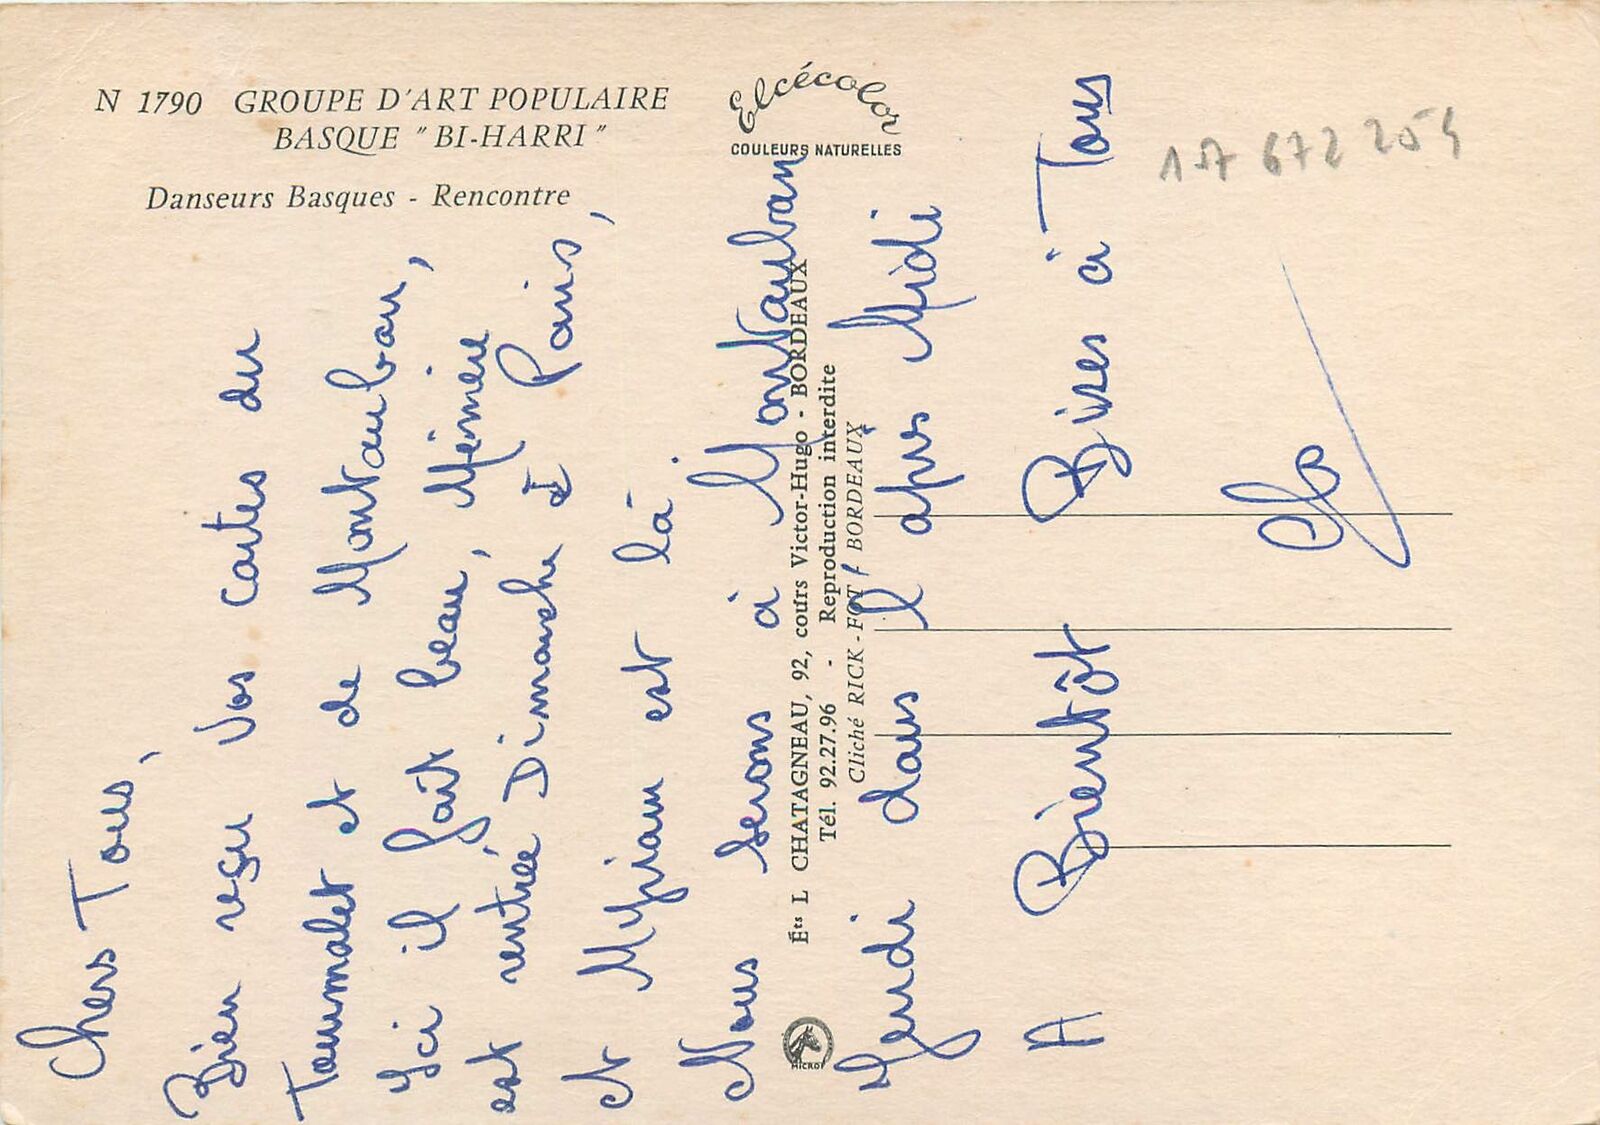 N 1790 GROUPE D'ART POPULAIRE
BASQUE " BI-HARRI "
Danseurs Basques - Rencontre
Elcécolor
COULEURS NATURELLES
157 672 254
Chers Tous,
Bien reçu vos cartes du
Tourmalet et de Montauban,
Ici il fait beau, Mémère
est rentrée Dimanche de Paris,
et Myriam est là
Nous serons à Montauban
Jeudi dans l'apres Midi
A Bientôt Bises à Tous
Éts L CHATAGNEAU, 92, cours Victor-Hugo - BORDEAUX
Tél. 92.27.96 - Reproduction interdite
Cliché RICK-FOT - BORDEAUX
MICRO